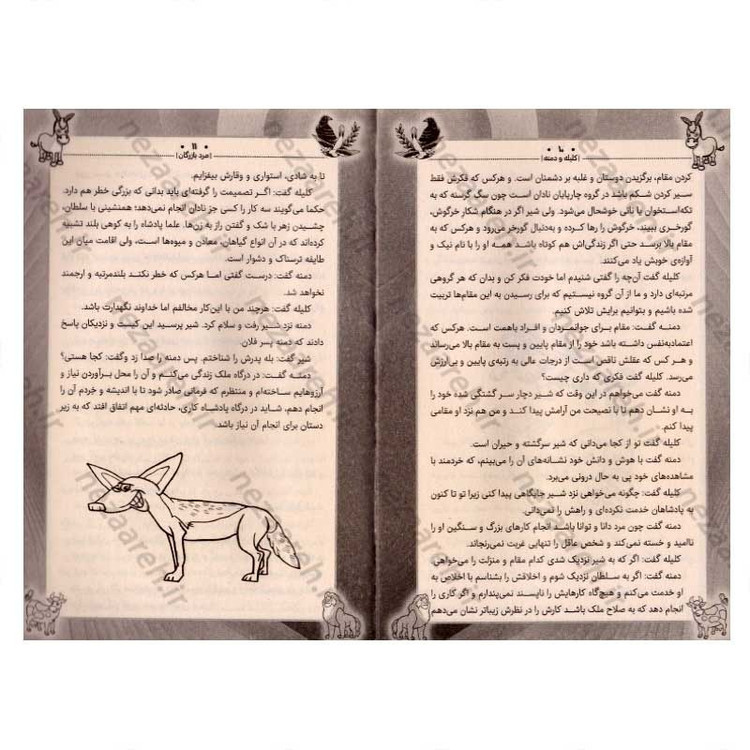 ۱۰
| کلیله و دمنه |
کردن مقام، برگزیدن دوستان و غلبه بر دشمنان است. و هرکس که فکرش فقط
سیر کردن شکم باشد در گروه چارپایان نادان است چون سگ گرسنه که به
تکه‌استخوان یا نانی خوشحال می‌شود. ولی شیر اگر در هنگام شکار خرگوش،
گورخری ببیند، خرگوش را رها کرده و به‌دنبال گورخر می‌رود و هرکس که به
مقام بالا برسد حتی اگر زندگی‌اش هم کوتاه باشد همه او را با نام نیک و
آوازه‌ی خوبش یاد می‌کنند.
کلیله گفت آن‌چه را گفتی شنیدم اما خودت فکر کن و بدان که هر گروهی
مرتبه‌ای دارد و ما از آن گروه نیستیم که برای رسیدن به این مقام‌ها تربیت
شده باشیم و بتوانیم برایش تلاش کنیم.
دمنه گفت: مقام برای جوانمردان و افراد باهمت است. هرکس که
اعتمادبه‌نفس داشته باشد خود را از مقام پایین و پست به مقام بالا می‌رساند
و هرکس که عقلش ناقص است از درجات عالی به رتبه‌ی پایین و بی‌ارزش
می‌رسد. کلیله گفت فکری که داری چیست؟
دمنه گفت می‌خواهم در این وقت که شیر دچار سرگشتگی شده خود را
به او نشان دهم تا با نصیحت من آرامش پیدا کند و من هم نزد او مقامی
پیدا کنم.
کلیله گفت تو از کجا می‌دانی که شیر سرگشته و حیران است.
دمنه گفت با هوش و دانش خود نشانه‌های آن را می‌بینم، که خردمند با
مشاهده‌های خود پی به حال درونی می‌برد.
کلیله گفت: چگونه می‌خواهی نزد شیر جایگاهی پیدا کنی زیرا تو تا کنون
به پادشاهان خدمت نکرده‌ای و راهش را نمی‌دانی.
دمنه گفت چون مرد دانا و توانا باشد انجام کارهای بزرگ و سنگین او را
ناامید و خسته نمی‌کند و شخص عاقل را تنهایی غربت نمی‌رنجاند.
کلیله گفت: اگر که به شیر نزدیک شدی کدام مقام و منزلت را می‌خواهی
دمنه گفت: اگر به سلطان نزدیک شوم و اخلاقش را بشناسم با اخلاص به
او خدمت می‌کنم و هیچ‌گاه کارهایش را ناپسند نمی‌پندارم و اگر کاری را
انجام دهد که به صلاح ملک باشد کارش را در نظرش زیباتر نشان می‌دهم
۱۱
| مرد بازرگان |
تا به شادی، استواری و وقارش بیفزایم.
کلیله گفت: اگر تصمیمت را گرفته‌ای باید بدانی که بزرگی خطر هم دارد.
حکما می‌گویند سه کار را کسی جز نادان انجام نمی‌دهد؛ همنشینی با سلطان،
چشیدن زهر با شک و گفتن راز به زن‌ها. علما پادشاه را به کوهی بلند تشبیه
کرده‌اند که در آن انواع گیاهان، معادن و میوه‌ها است، ولی اقامت میان این
طایفه ترسناک و دشوار است.
دمنه گفت: درست گفتی اما هرکس که خطر نکند بلندمرتبه و ارجمند
نخواهد شد.
کلیله گفت: هرچند من با این‌کار مخالفم اما خداوند نگهدارت باشد.
دمنه نزد شیر رفت و سلام کرد. شیر پرسید این کیست و نزدیکان پاسخ
دادند که دمنه پسر فلان.
شیر گفت: بله پدرش را شناختم. پس دمنه را صدا زد وگفت: کجا هستی؟
دمنه گفت: در درگاه ملک زندگی می‌کنم و آن را محل برآوردن نیاز و
آرزوهایم ساخته‌ام و منتظرم که فرمانی صادر شود تا با اندیشه و خِردم آن را
انجام دهم، شاید در درگاه پادشاه کاری، حادثه‌ای مهم اتفاق افتد که به زیر
دستان برای انجام آن نیاز باشد.
nezaareh.ir